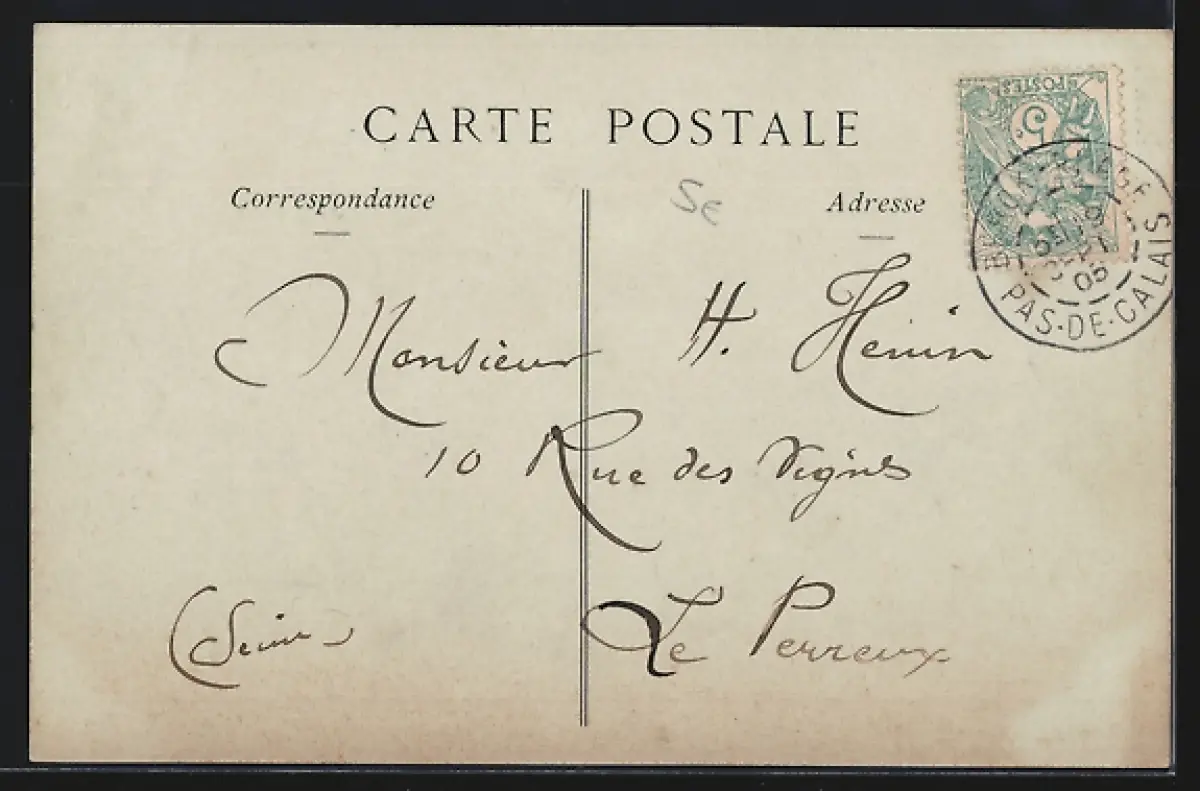 CARTE POSTALE
Correspondance
Adresse
POSTES
5
PAS-DE-CALAIS
Monsieur H. Henin
10 Rue des Vignes
Le Perreux
(Seine)